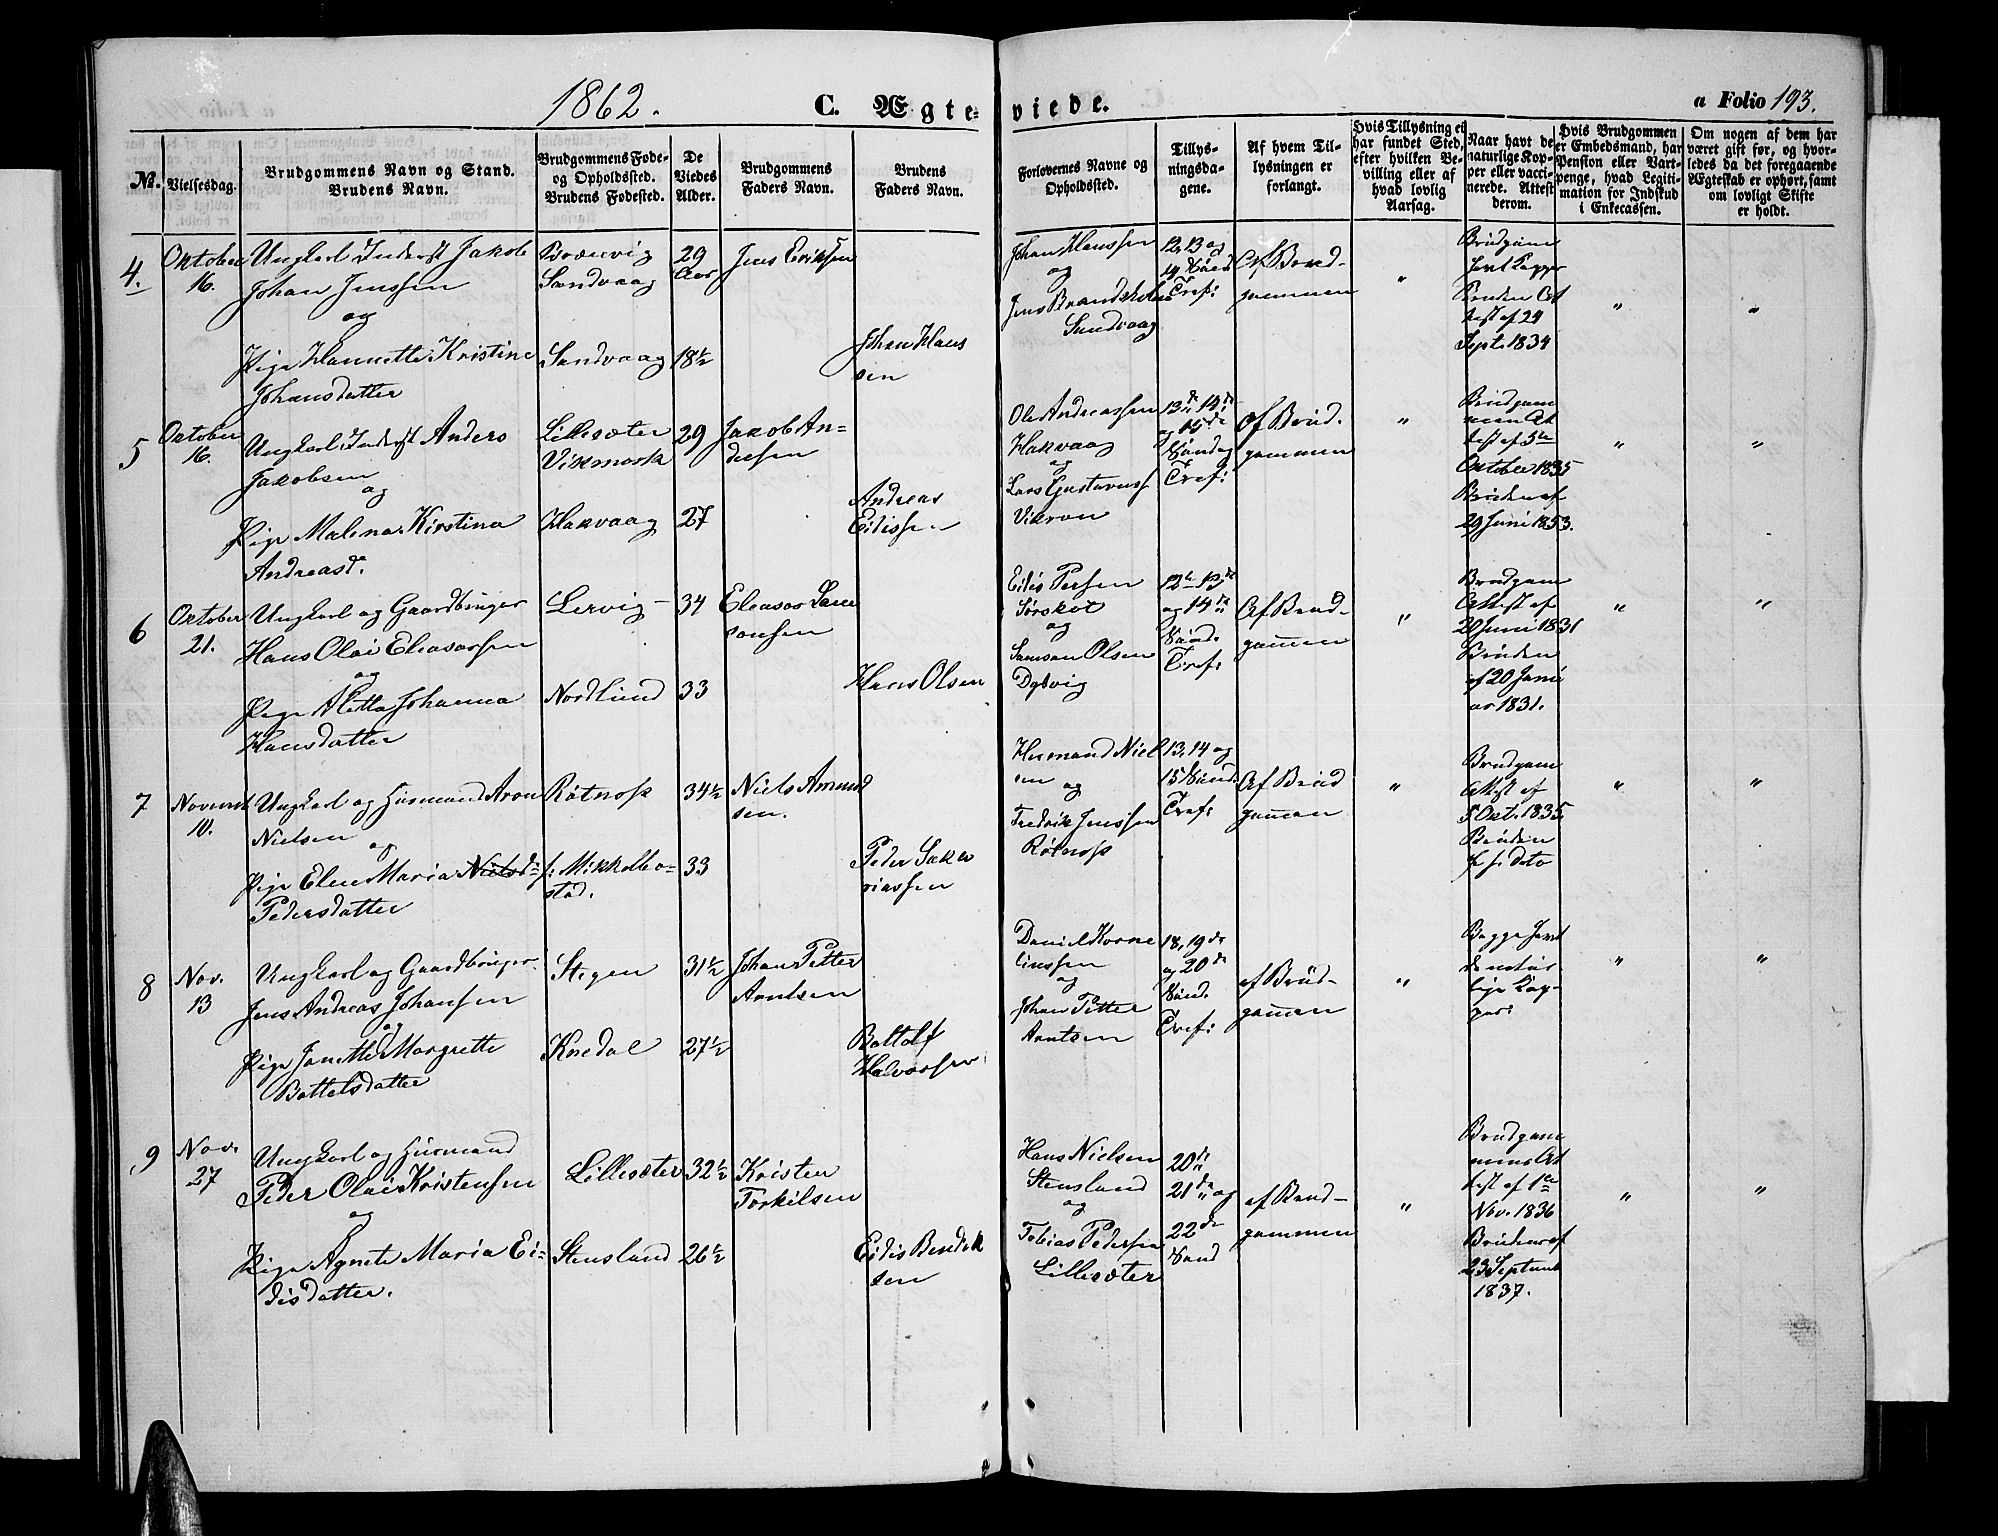 1862.
C. Ægteviede.
a Folio 193.
No.
Vielsesdag.
Brudgommens Navn og Stand.
Brudens Navn.
Brudgommens Føde-
og Opholdssted.
Brudens Fødested.
De
Viedes
Alder.
Brudgommens
Faders Navn.
Brudens
Faders Navn.
Forlovernes Navne og
Opholdssted.
Tillys-
ningsda-
gene.
Af hvem Til-
lysningen er
forlangt.
Hvis Tillysning ei
har fundet Sted,
efter hvilken Be-
villing eller af
hvad lovlig
Aarsag.
Naar havt de
naturlige Kop-
per eller vacci-
nerede. Attest
derom.
Hvis Brudgommen
er Embedsmand, har
Pension eller Vart-
penge, hvad Legiti-
mation for Indskud
i Enkecassen.
Om nogen af dem har
været gift før, og hvor-
ledes da det foregaaende
Ægteskab er ophørt, samt
om lovligt Skifte
er holdt.
4.
Oktober
16.
Ungkarl Inderst Jakob
Johan Jenssen
og
Pige Hannette Kristine
Johansdatter
Sandvaag
Sandvaag
29
Aar
18½
Jens Eriksen
Johan Hans
sen
Johan Hanssen
og
Jens
Sandvaag
12, 13 og
14 Sønd.
Tref:
Af Brud-
gommen
"
Brudgom
havt Kopper
Bruden At
test af 24
Sept. 1834
"
"
5
Oktober
16.
Ungkarl Inderst Anders
Jakobsen
og
Pige Malena Kirstina
Andreasd.
Lillesæter
Vikmark
Hakvaag
29
27
Jakob An-
dersen
Andreas
Eidissen
Ole Andreassen
Hakvaag
og
Lars Gustavuss
Vikran
13de 14de
og 15de
Søndag
Tref:
Af Brud-
gommen
"
Brudgom
mens At
test af 3de
Oktober 1835
Bruden af
29 Juni 1853.
"
"
6
Oktober
21.
Ungkarl og Gaardbruger
Hans Olai Eleasarsen
og
Pige Aletta Johanna
Hansdatter
Lervig
Nordlund
34
33
Eleasar Sam
sonsen
Hans Olsen
Eidis Persen
Sørskot
og
Samson Olsen
Dybvig
12te 13de
og 14de
Sønd.
Tref:
Af Brud-
gommen
"
Brudgom
Attest af
20 Juni 1831
Bruden
af 20 Janu
ar 1831.
"
"
7
Novemb
10.
Ungkarl og Husmand Aron
Nielsen
og
Pige Elen Maria Nielsd:
Pedersdatter
Røtnes
f: Mikkelbo-
stad.
34½
33
Niels Amund
sen.
Peder Saka
riassen
Hermand Niel
sen
og
Fredrik Jenssen
13, 14 og
15 Sønd.
Tref:
Af Brud
gommen
"
Brudgom
Attest af
5 Okt. 1835.
Bruden
"
"
8
Nov.
13
Ungkarl og Gaardbruger
Jens Andreas Johansen
og
Pige Janette Margrette
Bottelsdatter
Stegen
Knedal
31½
27½
Johan Petter
Arntsen
Bottolf
Halvorsen
Daniel Korne
liussen
og
Johan Petter
Arntsen
18, 19de
og 20de
Sønd.
Tref:
af Brud-
gommen
"
Begge havt
de natur
lige Kop-
per:
"
"
9
Nov.
27
Ungkarl og Husmand
Peder Olai Kristensen
og
Pige Agnete Maria Ei-
disdatter.
Lillesæter
Stensland
32½
26½
Kristen
Torkilsen
Eidis Bendik
sen
Hans Nielsen
Stensland
og
Tobias Pedersen
Lillesæter
20de
21de og
22de
Sønd
af Brud-
gommen
"
Brudgom
mens At
test af 1te
Nov. 1836
Bruden af
23 Septemb
1837.
"
"